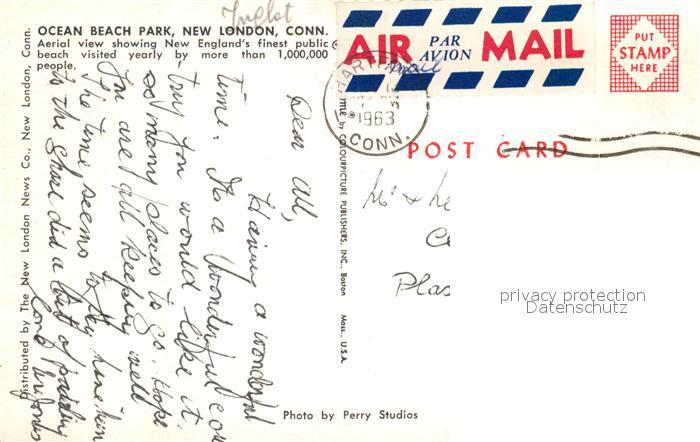 OCEAN BEACH PARK, NEW LONDON, CONN.
Aerial view showing New England's finest public
beach visited yearly by more than 1,000,000
people.
Distributed by The New London News Co., New London, Conn.
AIR PAR AVION MAIL
PUT
STAMP
HERE
HARTF
1963
CONN.
by COLOURPICTURE PUBLISHERS, INC., Boston Mass., U.S.A.
POST CARD
Dear All,
Having a wonderful
time. It's a wonderful
try you would like it.
so many places to go. Hope
You are all keeping well
The time seems to fly here
to the shore did a bit of
Photo by Perry Studios
privacy protection
Datenschutz